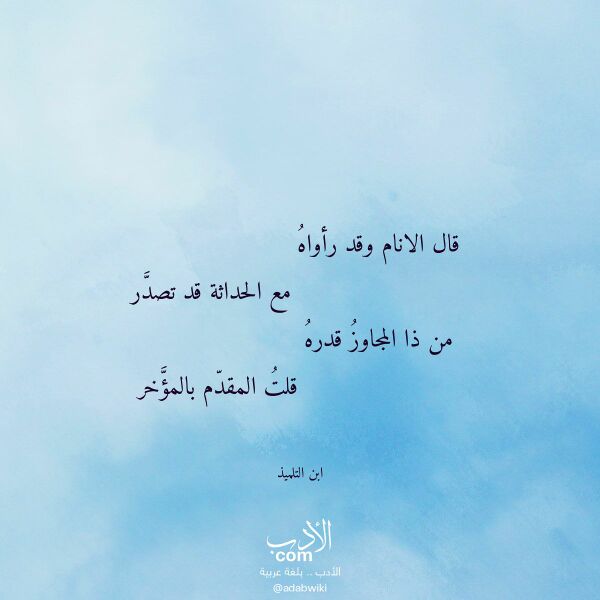 قال الانام وقد رأواهُ
مع الحداثة قد تصدَّر
من ذا المجاوزُ قدرهُ
قلتُ المقدّم بالمؤَّخر
ابن التلميذ
الأدب
com
الأدب .. بلغة عربية
@adabwiki